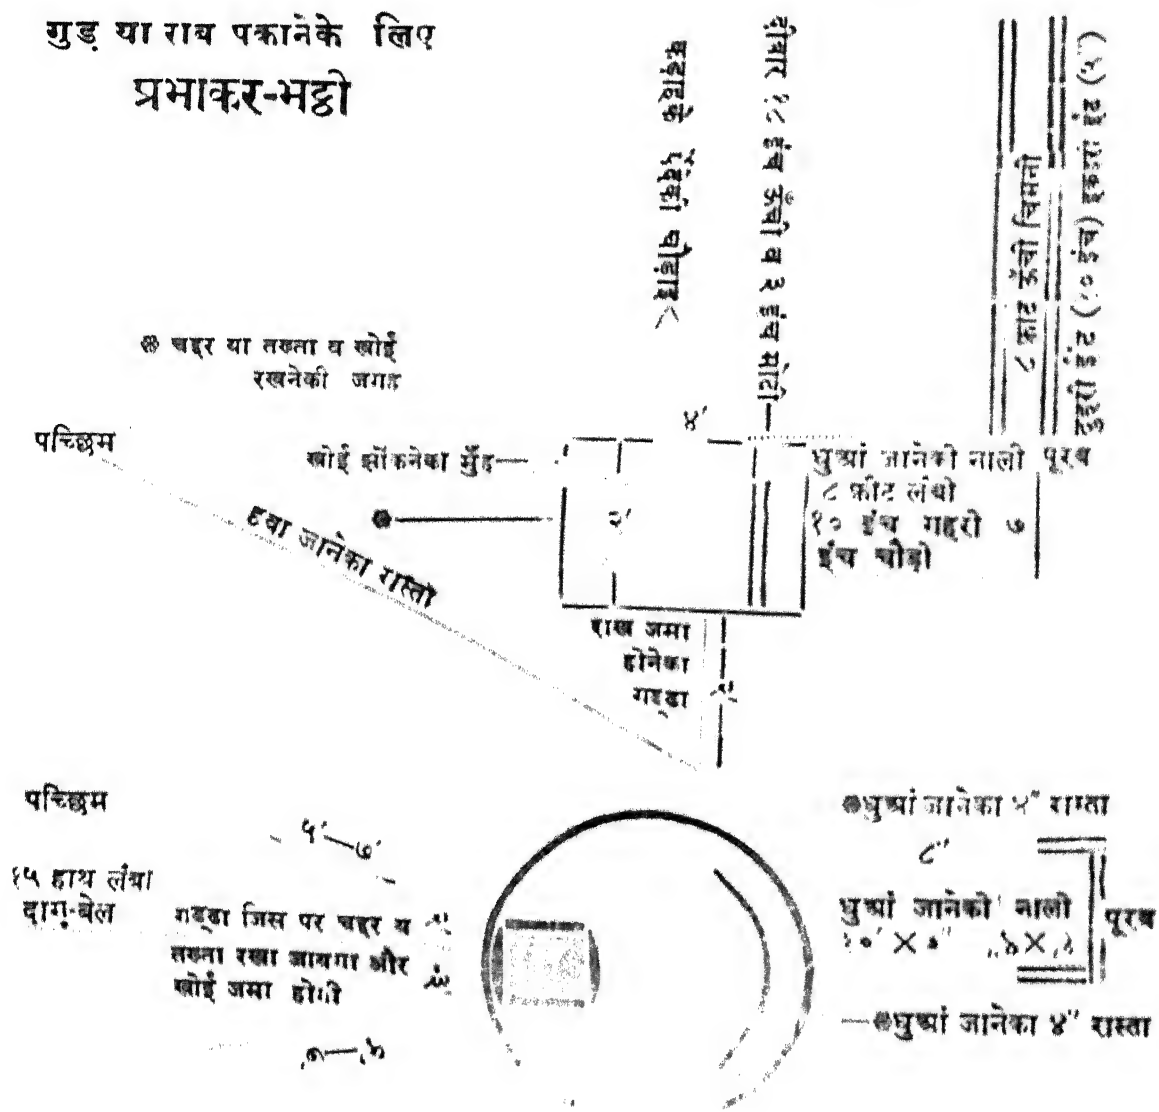 गुड़ या राब पकानेके लिए
प्रभाकर-भट्ठी
कढ़ाहके पेंदेकी चौड़ाई
दीवार १८ इंच ऊँची व ३ इंच मोटी
७ फ़ीट ऊँची चिमनी
दुहरी ईंट (१० इंच) इकहरी ईंट (५)
चद्दर या तख्ता व खोई
रखनेकी जगह
४'
पच्छिम
खोई झोंकनेका मुँह
धुआं जानेकी नाली
पूरब
८ फ़ीट लंबी
१० इंच गहरी ७
इंच चौड़ी
२'
हवा जानेका रास्ता
राख जमा
होनेका
गड्ढा
पच्छिम
५'—७'
धुआं जानेका ४" रास्ता
८"
१५ हाथ लंबी
दाग़-बेल
गड्ढा जिस पर चद्दर य
तख्ता रखा जायगा और
खोई जमा होगी
धुआं जानेकी नाली
पूरब
५'—७'
धुआं जानेका ४" रास्ता